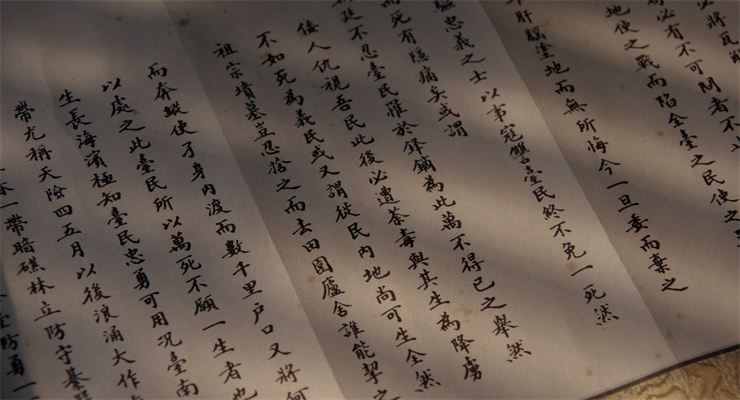 必將瓦解
必有不可問者不
地使之戰而陷全臺之民使之
肝腦塗地而無所悔今一旦委而棄之
忠義之士以事寇讎臺民終不免一死然
而死有隱痛矣或謂
不忍臺民罹於鋒鏑為此萬不得已之舉然
倭人仇視吾民此後必遺荼毒與其生為降虜
不如死為義民或又謂徙民內地尚可生全然
祖宗墳墓豈忍捨之而去田園廬舍誰能挈之
而奔縱使孑身內渡而數千里戶口又將何
以處之此臺民所以萬死不願一生者也
生長海濱極知臺民忠勇可用況臺南
帶尤稱天險四五月以後浪涌大作
一帶暗礁林立防守綦
防勇一